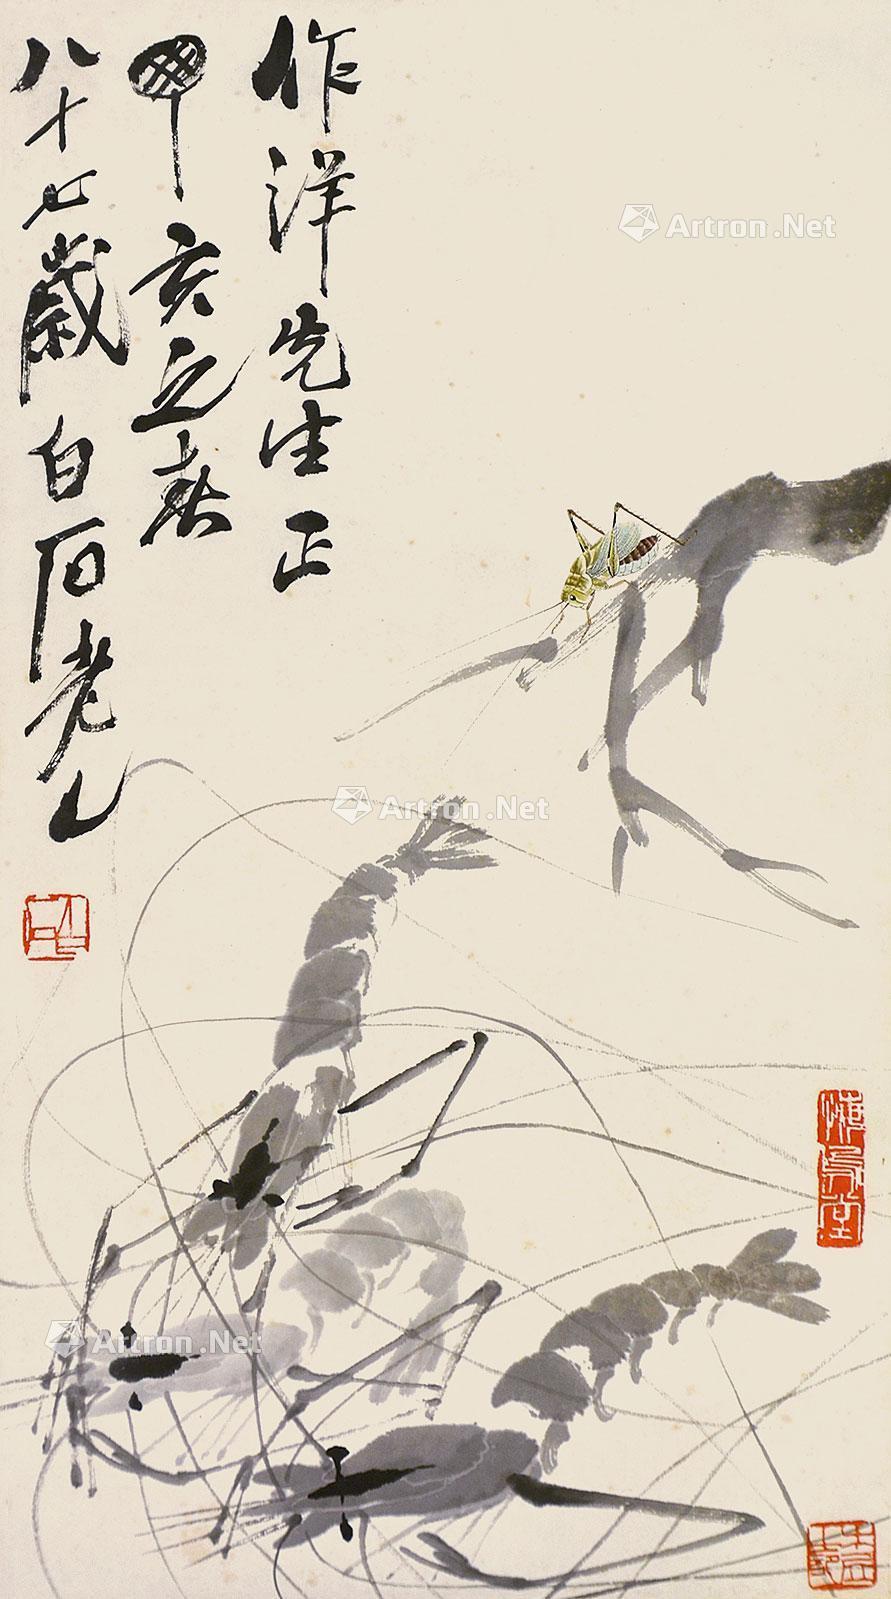 作洋先生正
甲亥之春
八十七歲白石老人
悔烏堂
Artron.Net
Artron.Net
Artron.Net